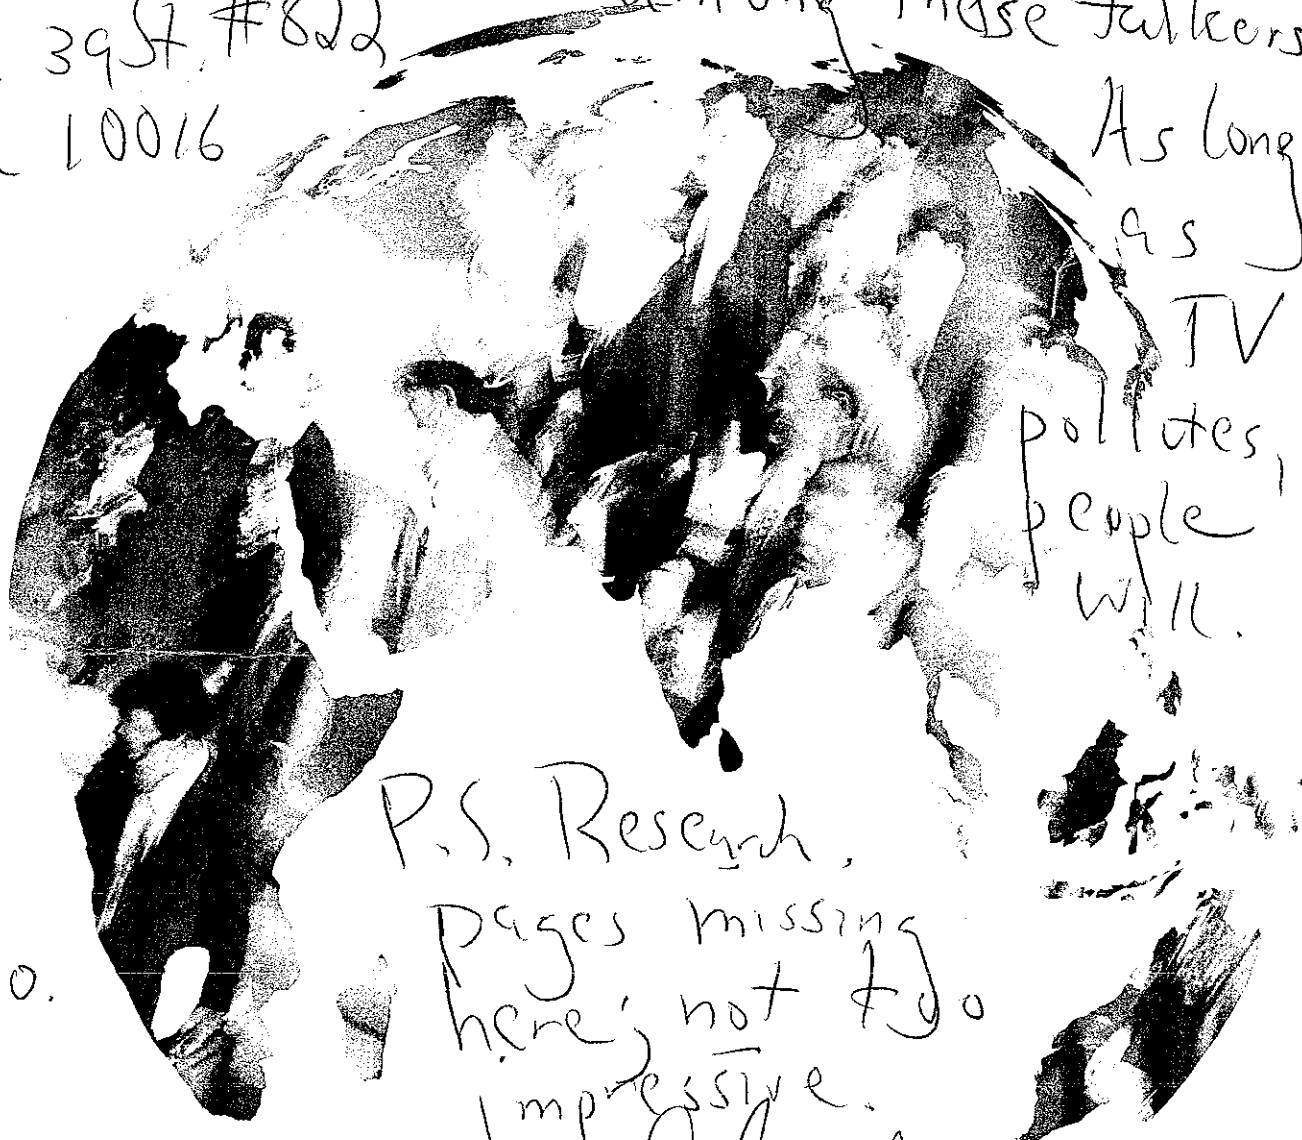 39 St. #822
10016
those talkers
As long
as
TV
pollutes,
people
will.
P.S. Research.
pages missing
here; not too
impressive.
o.